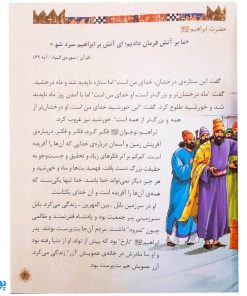 حضرت ابراهیم
«ما بر آتش فرمان دادیم: ای آتش بر ابراهیم سرد شو.»
(قرآن / سوره‌ی انبیاء / آیه ۶۹)
گفت این ستاره‌ی درخشان، خدای من است" اما ستاره ناپدید شد و ماه درخشید.
گفت "ماه درخشان‌تر و بزرگ‌تر است، این خدای من است" اما با آمدن روز ماه ناپدید
شد و خورشید طلوع کرد. گفت: "این خورشید درخشان، خدای من است او از
همه بزرگ‌تر است." اما خورشید نیز غروب کرد.
ابراهیم نوجوان فکر کرد، فکر و فکر... درباره‌ی
آفرینش زمین و آسمان درباره‌ی خدایی که آن‌ها را آفریده
است. کم‌کم بر اثر فکرهای زیاد و تحقیق و جست‌وجو به
حقیقت بزرگ دست یافت. فهمید بت‌ها، ماه، خورشید و
هر چیز دیگر نمی‌تواند خدا باشد. خدا تنها یکی‌ست که
همه‌ی آن‌ها را آفریده و آن خدای یکتاست.
او در سرزمین بابل - بین النهرین - زندگی می‌کرد. بابل
سرزمینی پر جمعیت بود و پادشاه قدرتمند و ظالمی
چون "نمرود" داشت. مردم آن‌جا بت‌پرست بودند. پدر
ابراهیم "تارخ" بود که پیش از تولد او از دنیا رفته بود
و او با مادرش در خانه‌ی عمویش "آزر" زندگی می‌کرد.
آزر عمویش هم بت‌پرست بود.